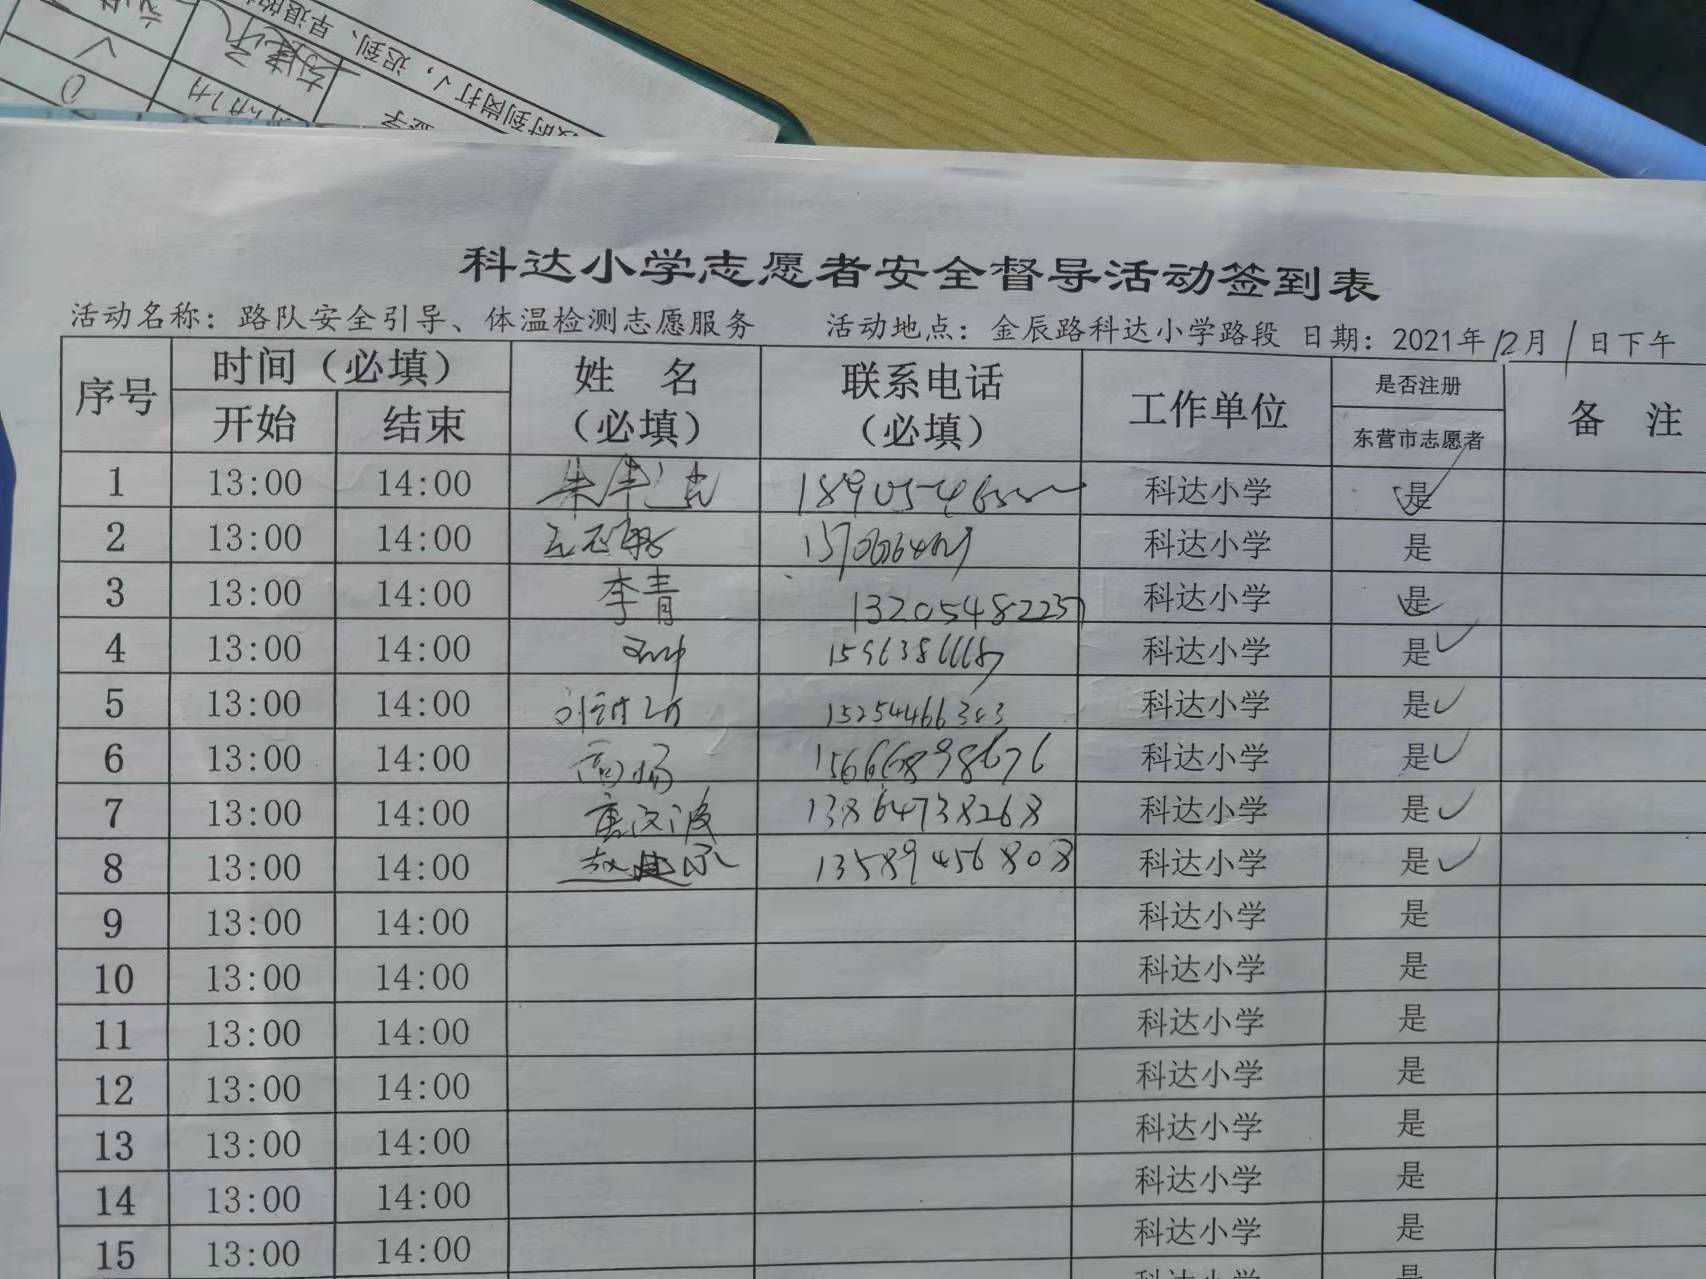 科达小学志愿者安全督导活动签到表
活动名称：路队安全引导、体温检测志愿服务 活动地点：金辰路科达小学路段 日期：2021年12月1日下午
序号 时间（必填） 姓 名（必填） 联系电话（必填） 工作单位 是否注册 备 注
开始 结束 东营市志愿者
1 13:00 14:00 科达小学 是
2 13:00 14:00 科达小学 是
3 13:00 14:00 李青 13205482237 科达小学 是
4 13:00 14:00 科达小学 是✓
5 13:00 14:00 15254466303 科达小学 是✓
6 13:00 14:00 15666898676 科达小学 是✓
7 13:00 14:00 13864738268 科达小学 是✓
8 13:00 14:00 13589456808 科达小学 是✓
9 13:00 14:00 科达小学 是
10 13:00 14:00 科达小学 是
11 13:00 14:00 科达小学 是
12 13:00 14:00 科达小学 是
13 13:00 14:00 科达小学 是
14 13:00 14:00 科达小学 是
15 13:00 14:00 科达小学 是